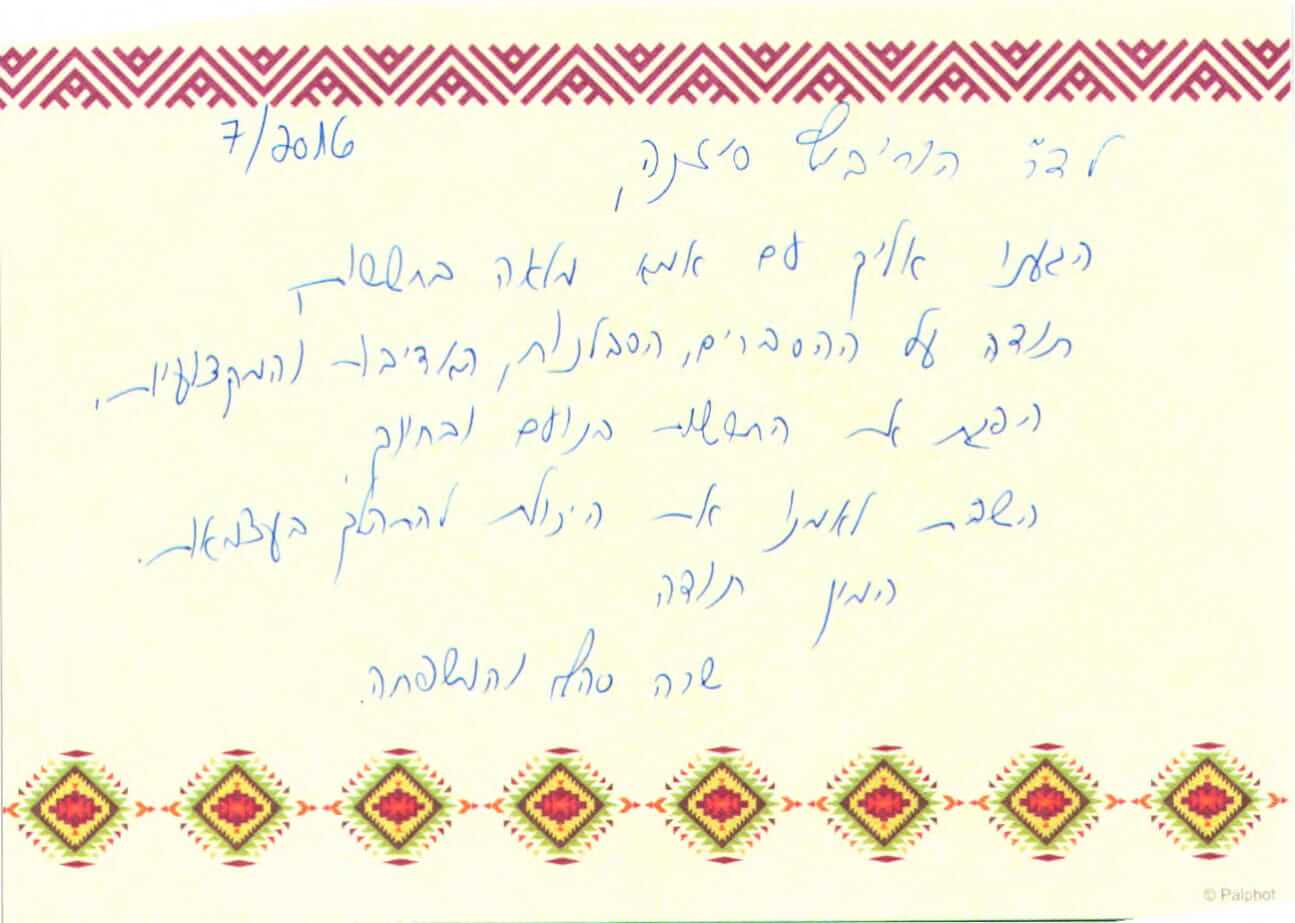 7/2016
לד"ר הורביץ סיגנה,
הגענו אליך עם אמא מלאה בחששות,
תודה על ההסברים, הסבלנות, האדיבות והמקצועיות,
הפגת את החששות בנועם ובחיוך,
השבת לאמנו את היכולת להתהלך בעצמאות.
המון תודה
שרה והמשפחה.
© Palphot